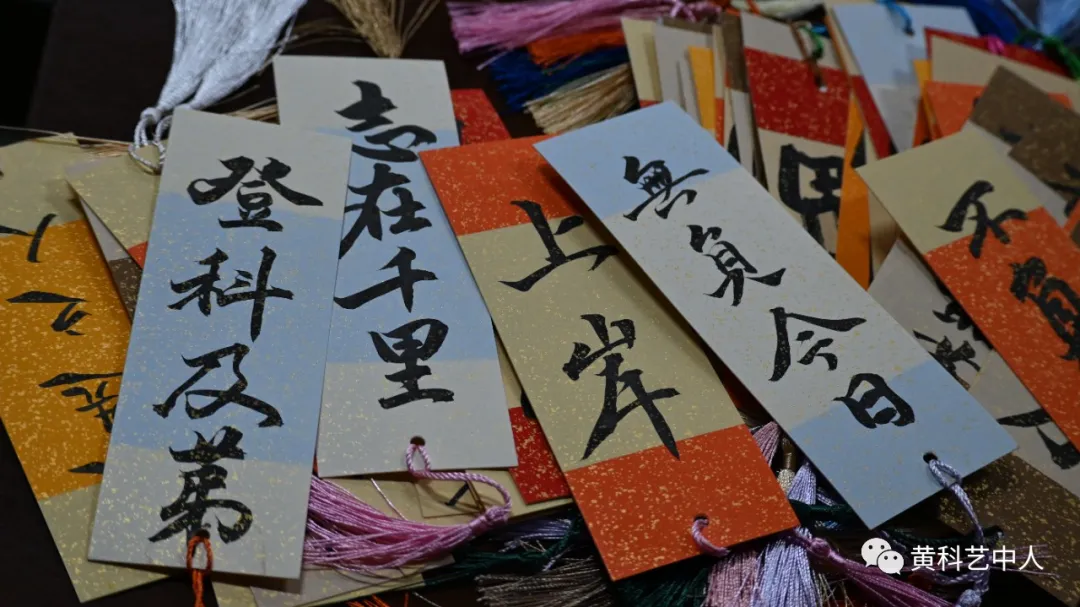 登科及第
志在千里
上岸
無負今日
不負
黄科艺中人